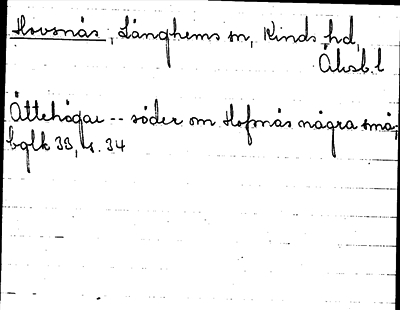 Hovsnäs, Långhems sn, Kinds hd,
Älvsb. l
Ättehögar -- söder om Hofsnäs några små,
bglk 33, s. 34